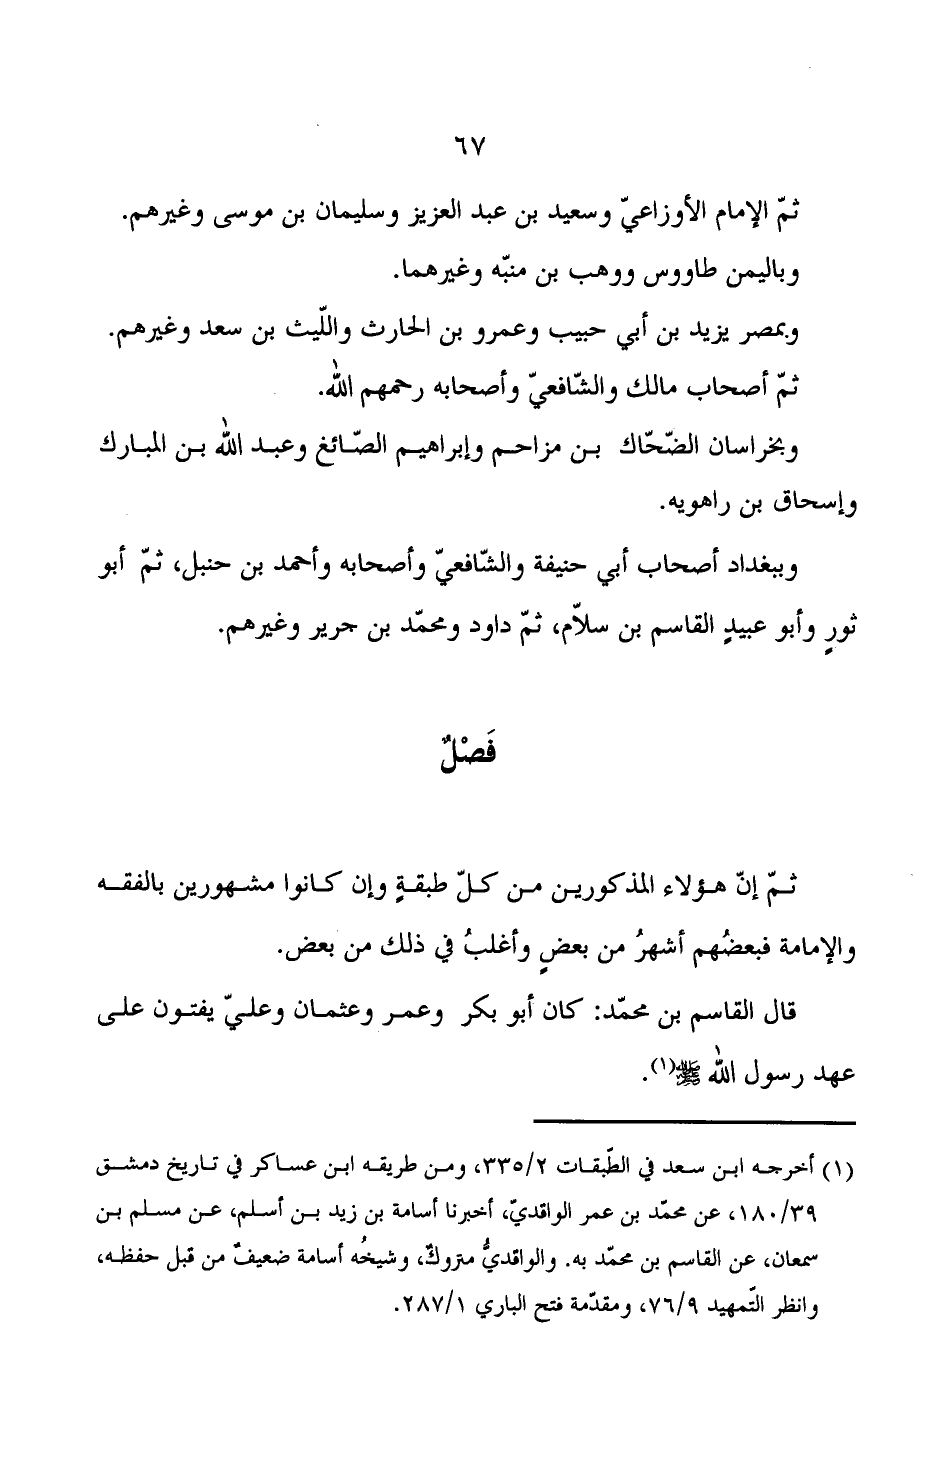 ٦٧
ثمّ الإمام الأوزاعيّ وسعيد بن عبد العزيز وسليمان بن موسى وغيرهم.
وباليمن طاووس ووهب بن منبّه وغيرهما.
وبمصر يزيد بن أبي حبيب وعمرو بن الحارث واللّيث بن سعد وغيرهم.
ثمّ أصحاب مالك والشّافعيّ وأصحابه رحمهم الله.
وبخراسان الضّحّاك بن مزاحم وإبراهيم الصّائغ وعبد الله بن المبارك
وإسحاق بن راهويه.
وببغداد أصحاب أبي حنيفة والشّافعيّ وأصحابه وأحمد بن حنبل، ثمّ أبو
ثورٍ وأبو عبيدٍ القاسم بن سلاّم، ثمّ داود ومحمّد بن جرير وغيرهم.
فَصْلٌ
ثمّ إنّ هؤلاء المذكورين من كلّ طبقةٍ وإن كانوا مشهورين بالفقه
والإمامة فبعضُهم أشهرُ من بعضٍ وأغلبُ في ذلك من بعض.
قال القاسم بن محمّد: كان أبو بكر وعمر وعثمان وعليّ يفتون على
عهد رسول الله ﷺ(١).
(١) أخرجه ابن سعد في الطّبقات ٣٣٥/٢، ومن طريقه ابن عساكر في تاريخ دمشق
١٨٠/٣٩، عن محمّد بن عمر الواقديّ، أخبرنا أسامة بن زيد بن أسلم، عن مسلم بن
سمعان، عن القاسم بن محمّد به. والواقديُّ متروكٌ، وشيخُه أسامة ضعيفٌ من قبل حفظه،
وانظر التّمهيد ٧٦/٩، ومقدّمة فتح الباري ٢٨٧/١.